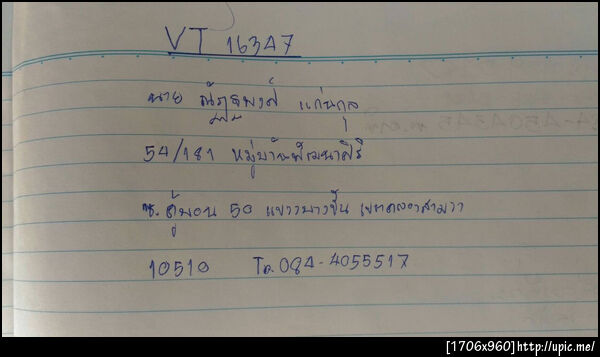 VT 16347
นาย ณัฏฐพงศ์ แก่นกุล
54/181 หมู่บ้านพัฒนาสิริ
ซ. คู้บอน 50 แขวงบางชัน เขตคลองสามวา
10510 Tel. 084-4055517
[1706x960]http://upic.me/